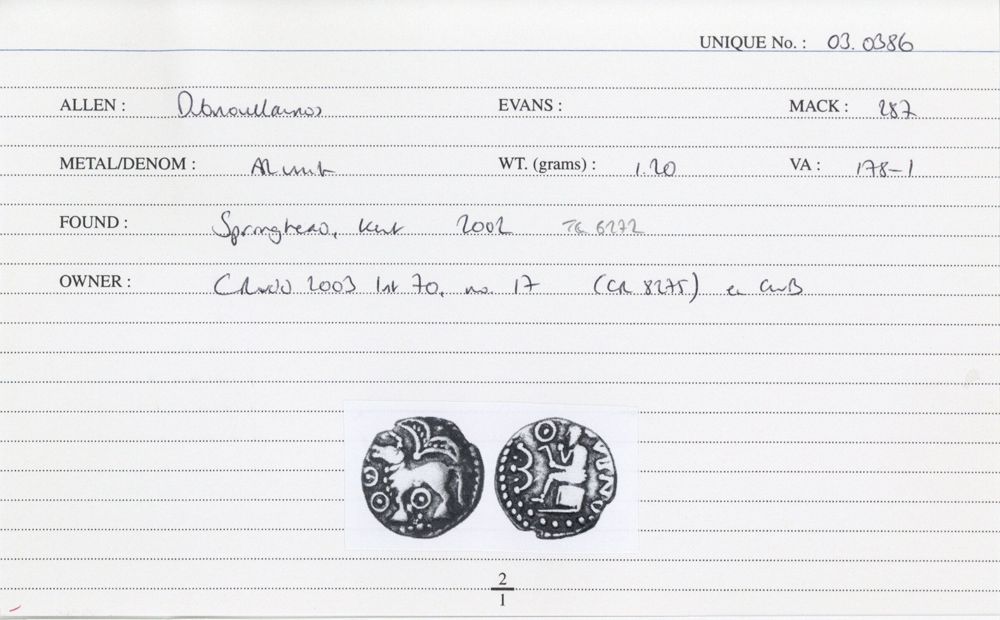 UNIQUE No. : 03.0386
ALLEN : Dubnovellaunos EVANS : MACK : 287
METAL/DENOM : AR unit WT. (grams) : 1.20 VA : 178-1
FOUND : Springhead, Kent 2002 TQ 6272
OWNER : 2003 list 70, no. 17 (CR 8275) ex
2
1